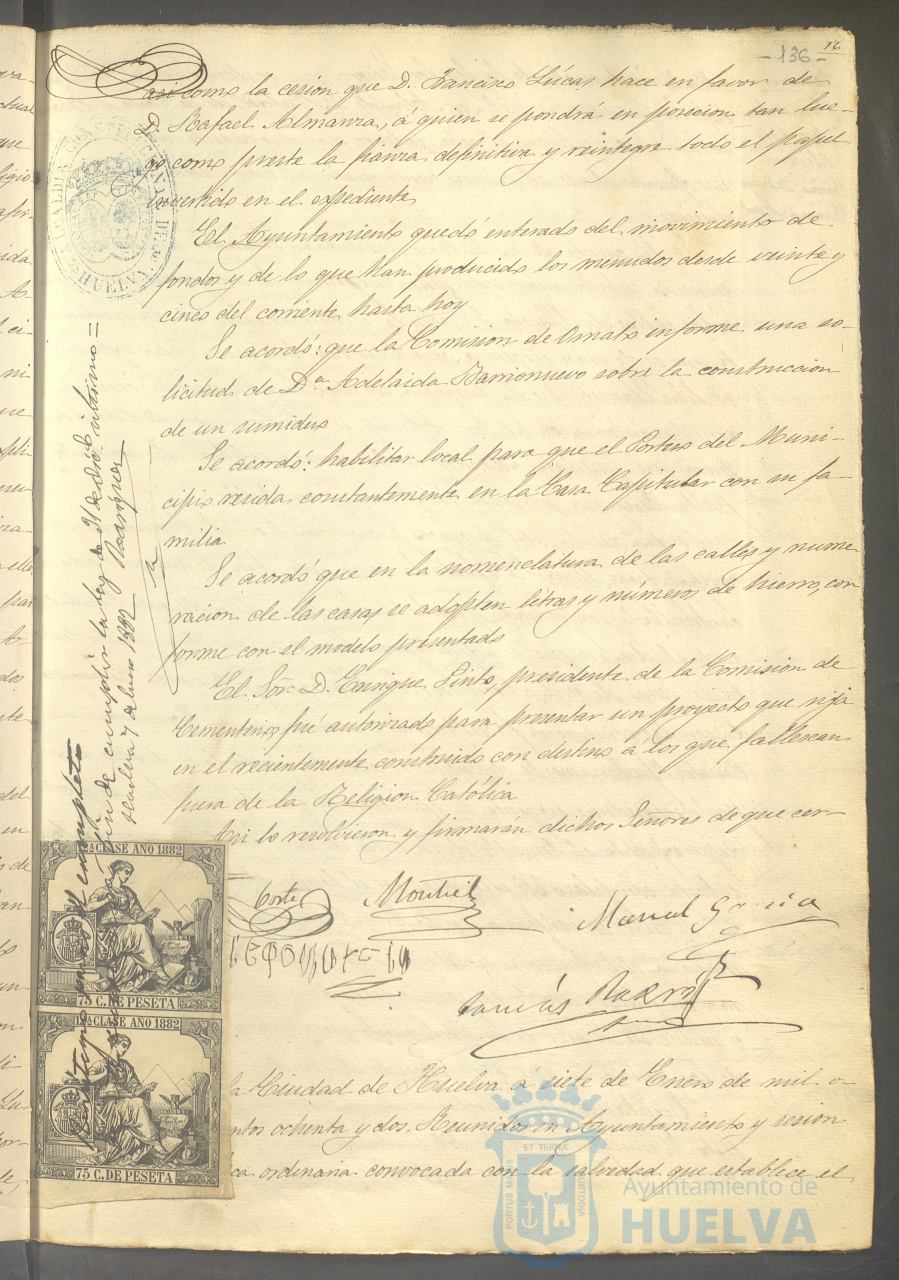 16
- 136 -
asi como la cesion que D. Francisco Lúcas hace en favor de
D. Rafael Almanza, á quien se pondrá en posecion tan lue-
go como preste la fianza definitiva y reintegre todo el papel
invertido en el espediente,
El Ayuntamiento quedó enterado del movimiento de
fondos y de lo que han producido los menudos desde veinte y
cinco del corriente hasta hoy
Se acordó: que la Comision de Ornato informe una so-
licitud de Dª Adelaida Barrionuevo sobre la construccion
de un sumidero
Se acordó: habilitar local para que el Portero del Muni-
cipio resida constantemente en la Casa Capitular con su fa-
milia
Se acordó que en la nomenclátura de las calles y nume
racion de las casas se adopten letras y números de hierro, con
forme con el modelo presentado
El Sor. D. Enrique Pinto, presidente de la Comision de
Cementerios fué autorizado para presentar un proyecto que rija
en el recientemente construido con destino á los que fallescan
fuera de la Religion Católica
Asi lo resolvieron y firmarán dichos Señores de que cer-
Corte
Montiel
Manuel Garcia
la Ciudad de Huelva á siete de Enero de mil o-
ntos ochenta y dos. Reunidos en Ayuntamiento y sesion
ca ordinaria convocada con la salvedad que establece el
ALCALDIA CONSTITUCIONAL DE
HUELVA
de cumplir la ley de
Huelva 7 de Enero 1882 Rodriguez
12ª CLASE AÑO 1882
75 C. DE PESETA
12ª CLASE AÑO 1882
75 C. DE PESETA
ET TERRA
PORTUS MARIS
CUSTODIA
Ayuntamiento de
HUELVA